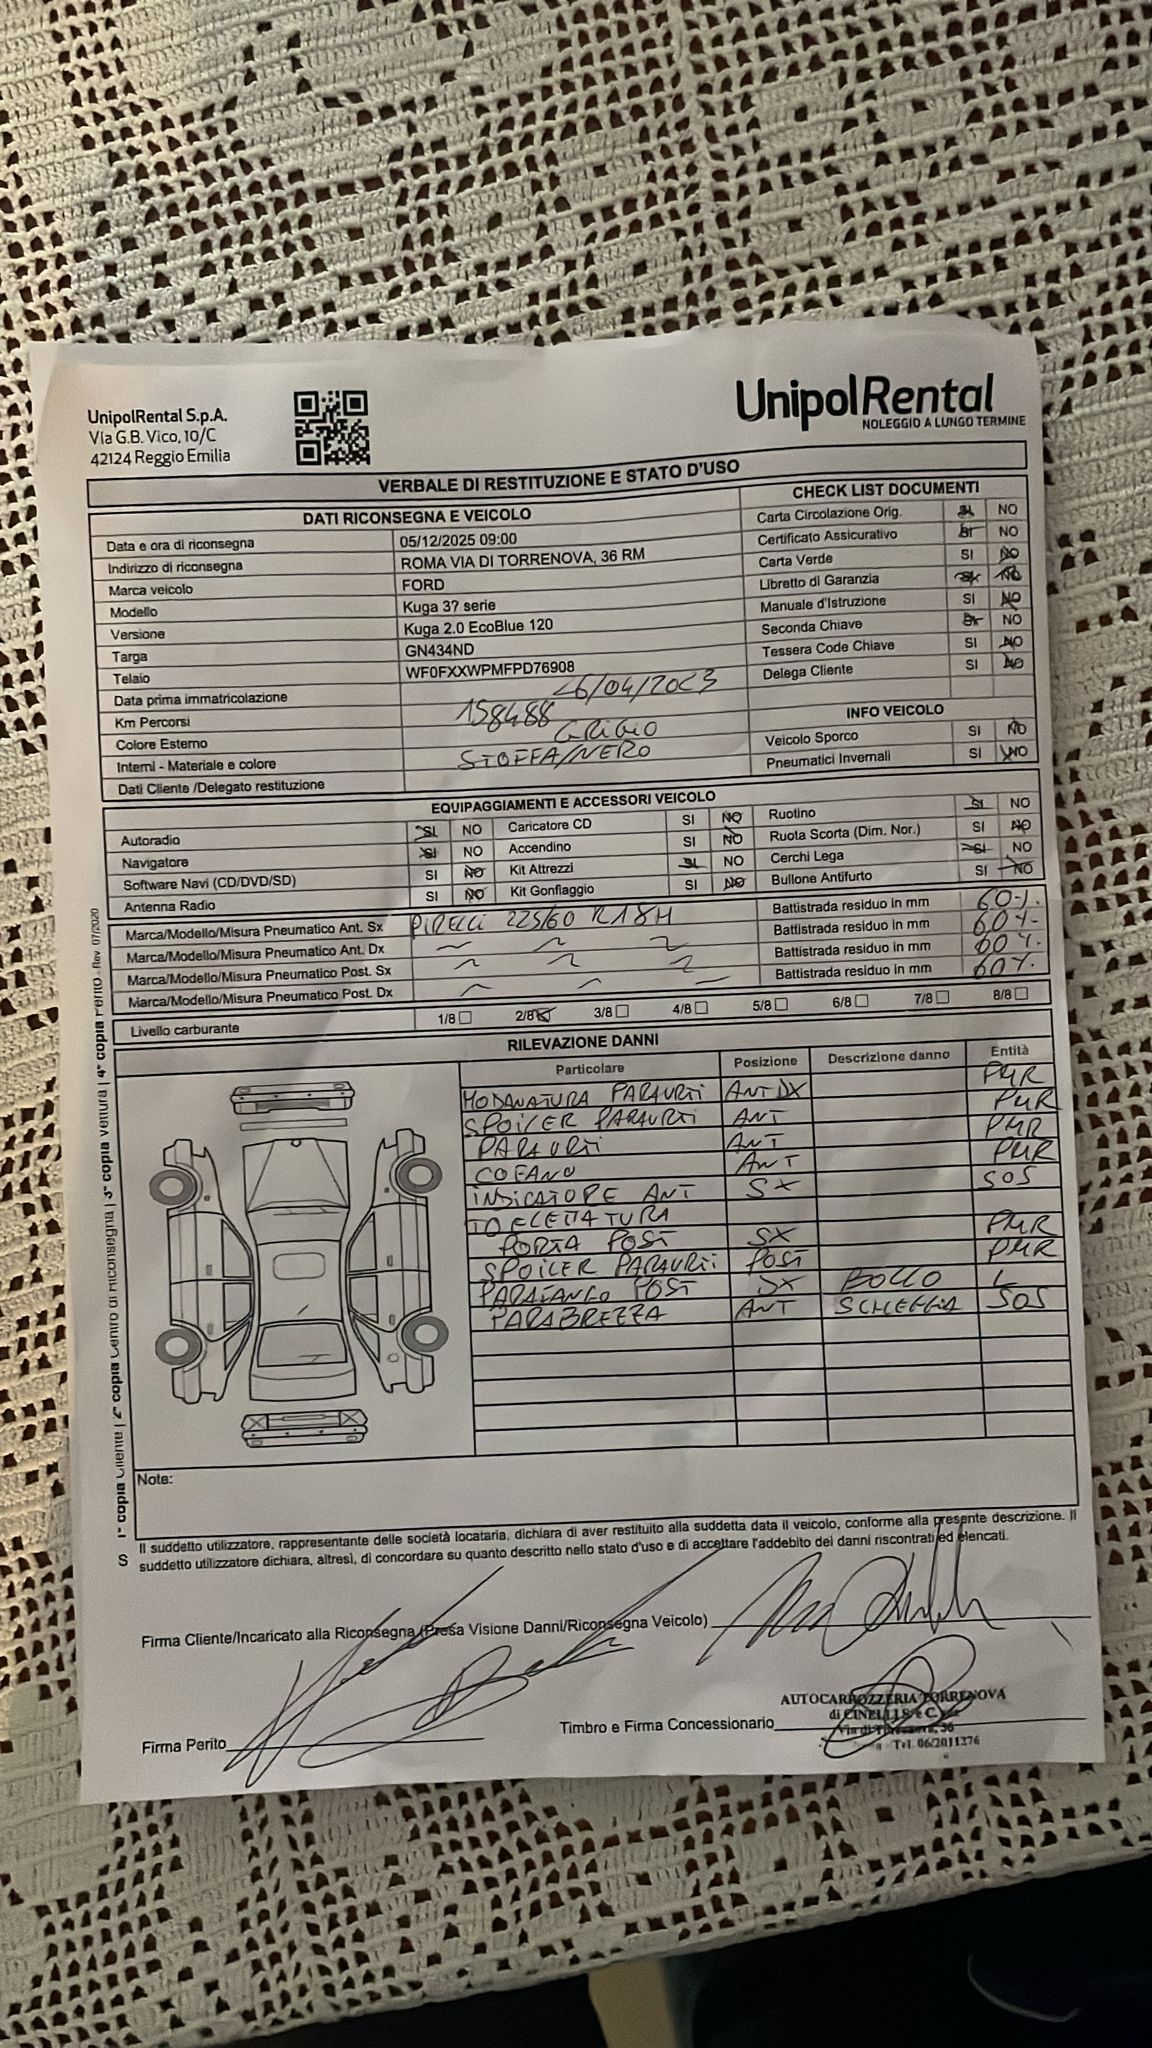 UnipolRental S.p.A.
Via G.B. Vico, 10/C
42124 Reggio Emilia
UnipolRental
NOLEGGIO A LUNGO TERMINE
VERBALE DI RESTITUZIONE E STATO D'USO
DATI RICONSEGNA E VEICOLO
Data e ora di riconsegna 05/12/2025 09:00
Indirizzo di riconsegna ROMA VIA DI TORRENOVA, 36 RM
Marca veicolo FORD
Modello Kuga 3? serie
Versione Kuga 2.0 EcoBlue 120
Targa GN434ND
Telaio WF0FXXWPMFPD76908
Data prima immatricolazione 26/04/2023
Km Percorsi 158488
Colore Esterno GRIGIO
Interni - Materiale e colore STOFFA/NERO
Dati Cliente /Delegato restituzione
CHECK LIST DOCUMENTI
Carta Circolazione Orig. SI NO
Certificato Assicurativo SI NO
Carta Verde SI NO
Libretto di Garanzia SI NO
Manuale d'Istruzione SI NO
Seconda Chiave SI NO
Tessera Code Chiave SI NO
Delega Cliente SI NO
INFO VEICOLO
Veicolo Sporco SI NO
Pneumatici Invernali SI NO
EQUIPAGGIAMENTI E ACCESSORI VEICOLO
Autoradio SI NO Caricatore CD SI NO Ruotino SI NO
Navigatore SI NO Accendino SI NO Ruota Scorta (Dim. Nor.) SI NO
Software Navi (CD/DVD/SD) SI NO Kit Attrezzi SI NO Cerchi Lega SI NO
Antenna Radio SI NO Kit Gonfiaggio SI NO Bullone Antifurto SI NO
Marca/Modello/Misura Pneumatico Ant. Sx PIRELLI 225/60 R18H Battistrada residuo in mm 60%.
Marca/Modello/Misura Pneumatico Ant. Dx Battistrada residuo in mm 60%.
Marca/Modello/Misura Pneumatico Post. Sx Battistrada residuo in mm 60%.
Marca/Modello/Misura Pneumatico Post. Dx Battistrada residuo in mm 60%.
Livello carburante 1/8 2/8 3/8 4/8 5/8 6/8 7/8 8/8
RILEVAZIONE DANNI
Particolare Posizione Descrizione danno Entità
MODANATURA PARAURTI ANT DX PMR
SPOILER PARAURTI ANT PMR
PARAURTI ANT PMR
COFANO ANT PMR
INDICATORE ANT SX SOS
TOELETTATURA
PORTA POST SX PMR
SPOILER PARAURTI POST PMR
PARAFANGO POST BOLLO L
PARABREZZA ANT SCHEGGIA SOS
Note:
Il suddetto utilizzatore, rappresentante delle società locataria, dichiara di aver restituito alla suddetta data il veicolo, conforme alla presente descrizione. Il
suddetto utilizzatore dichiara, altresì, di concordare su quanto descritto nello stato d'uso e di accettare l'addebito dei danni riscontrati ed elencati.
Firma Cliente/Incaricato alla Riconsegna (Presa Visione Danni/Riconsegna Veicolo)
Firma Perito
Timbro e Firma Concessionario
AUTOCARROZZERIA TORRENOVA
di CINELLI S. e C.
Via di Torrenova, 36
Tel. 06/2011276
1° copia Cliente | 2° copia Centro di Riconsegna | 3° copia Ventura | 4° copia Perito - Rev 07/2020
S